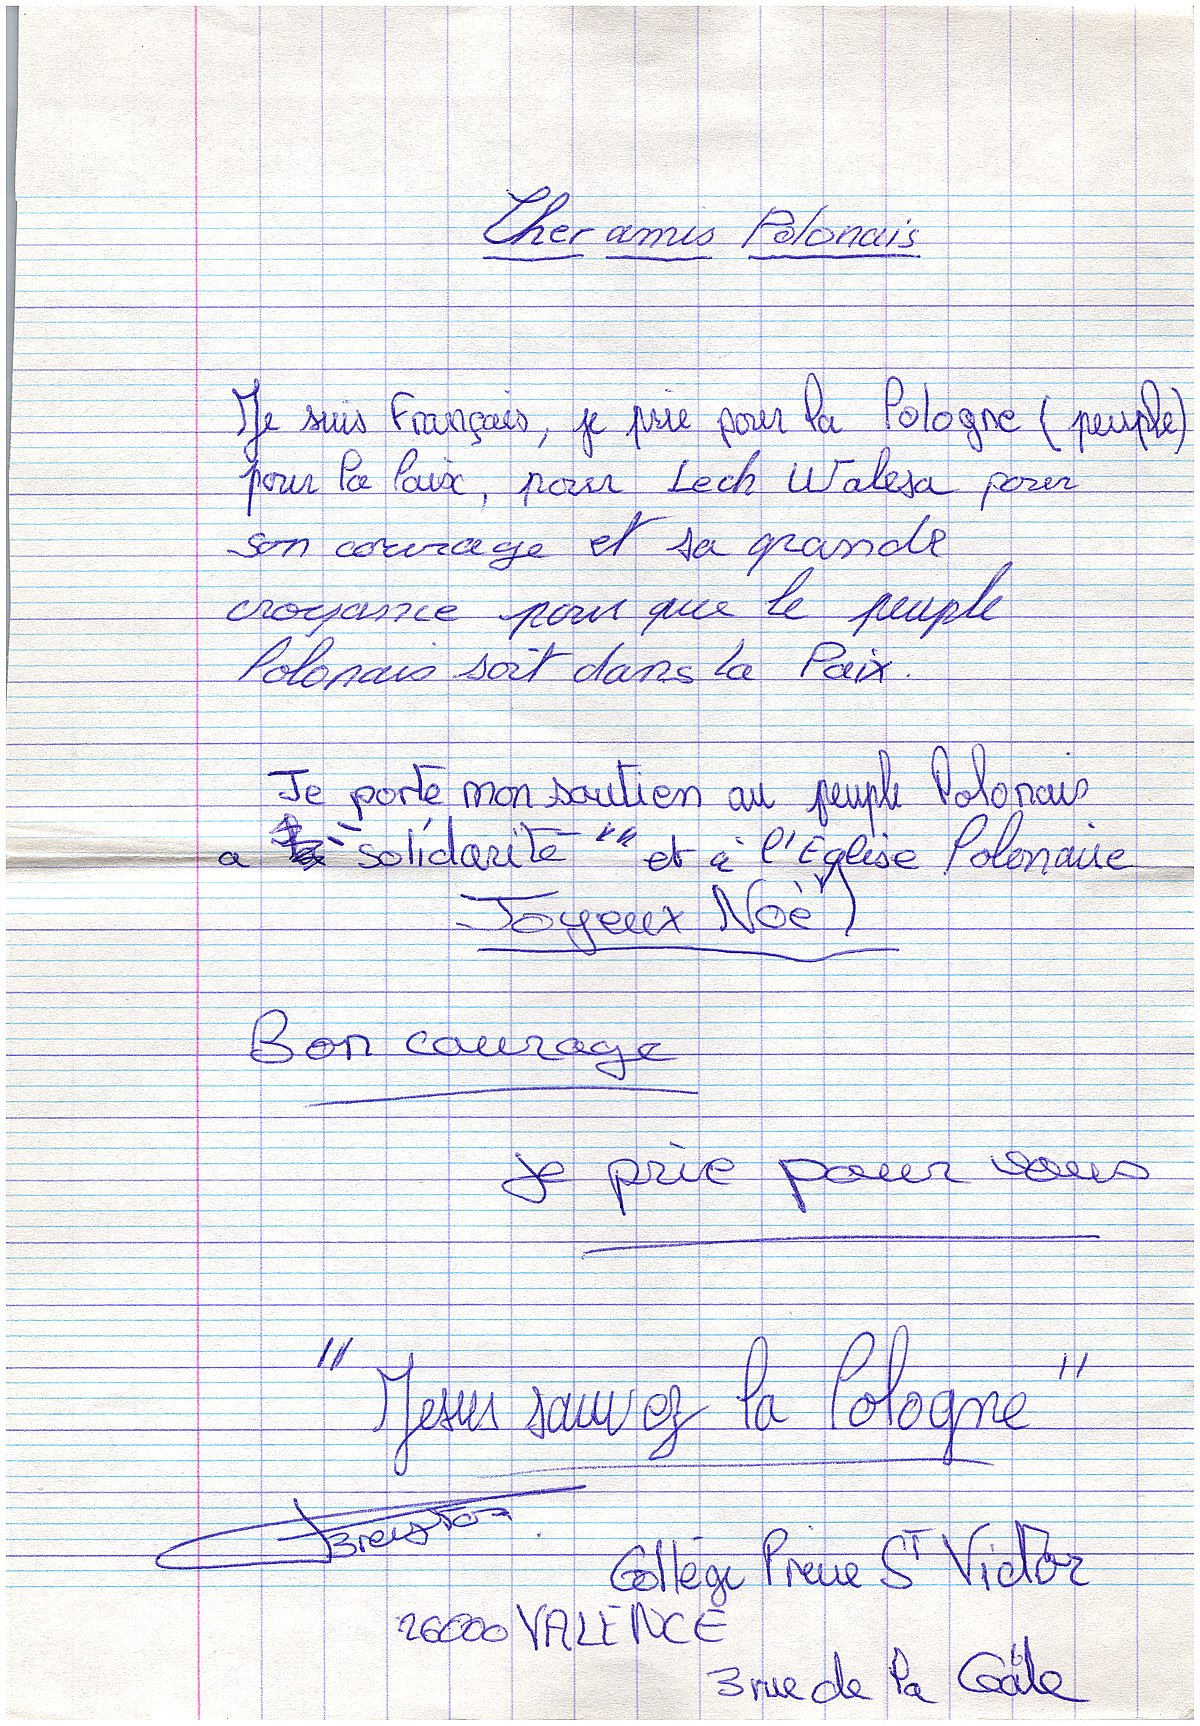 Cher amis Polonais
Je suis Français, je prie pour la Pologne (peuple)
pour la Paix, pour Lech Walesa pour
son courage et sa grande
croyance pour que le peuple
Polonais soit dans la Paix.
Je porte mon soutien au peuple Polonais
a "solidarité" et à l'Eglise Polonaise
Joyeux Noël
Bon courage
je prie pour vous
"Jesus sauvez la Pologne"
Collège Privé St Victor
26000 VALENCE
3 rue de la